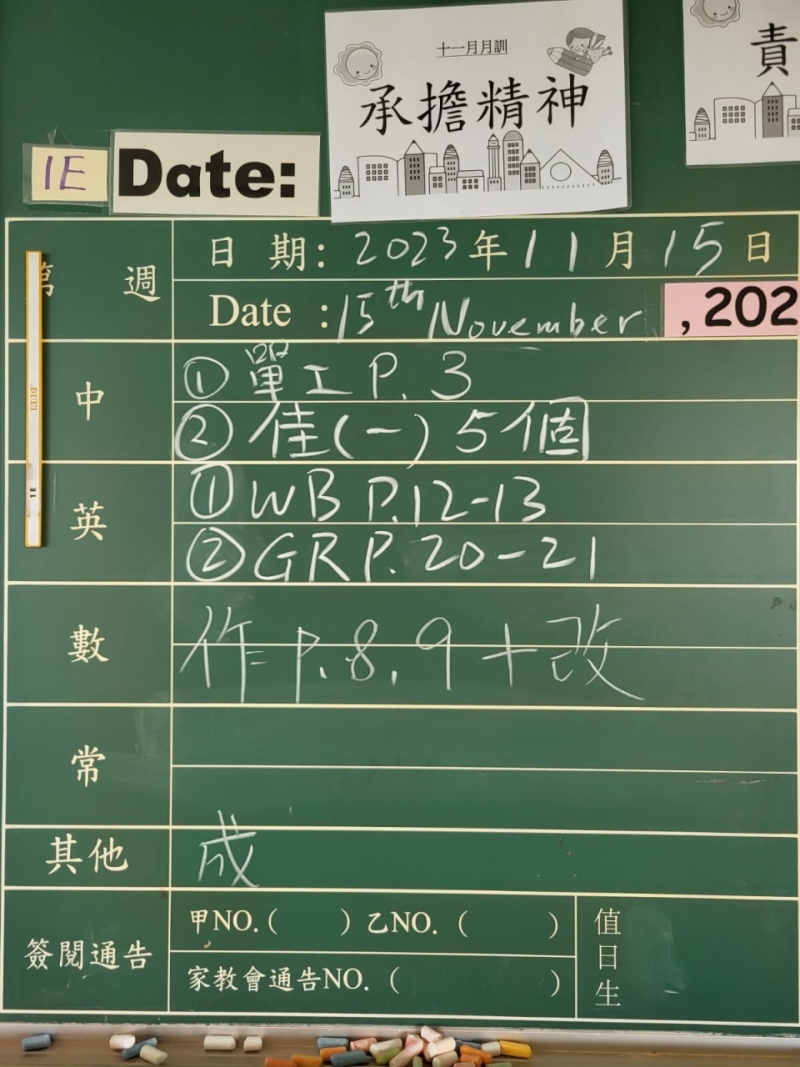 十一月月訓
承擔精神
責
1E Date:
週
日 期: 2023年11月15日
Date :15th November , 202
中
① 單工 P. 3
② 佳(一) 5個
英
① WB P.12-13
② GR P. 20-21
數
作= P. 8, 9 + 改
常
其他
成
簽閱通告
甲NO.( ) 乙NO. ( )
家教會通告NO. ( )
值日生
1E